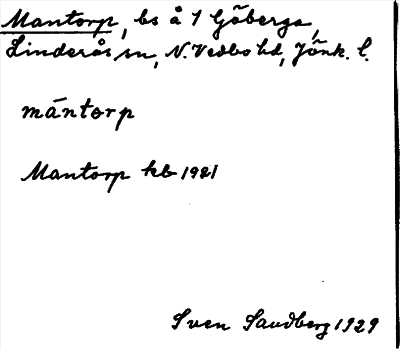 Mantorp, bs å 1 Göberga,
Linderås sn, N. Vedbo hd, Jönk. l.
mántorp
Mantorp kb 1921
Sven Sandberg 1929